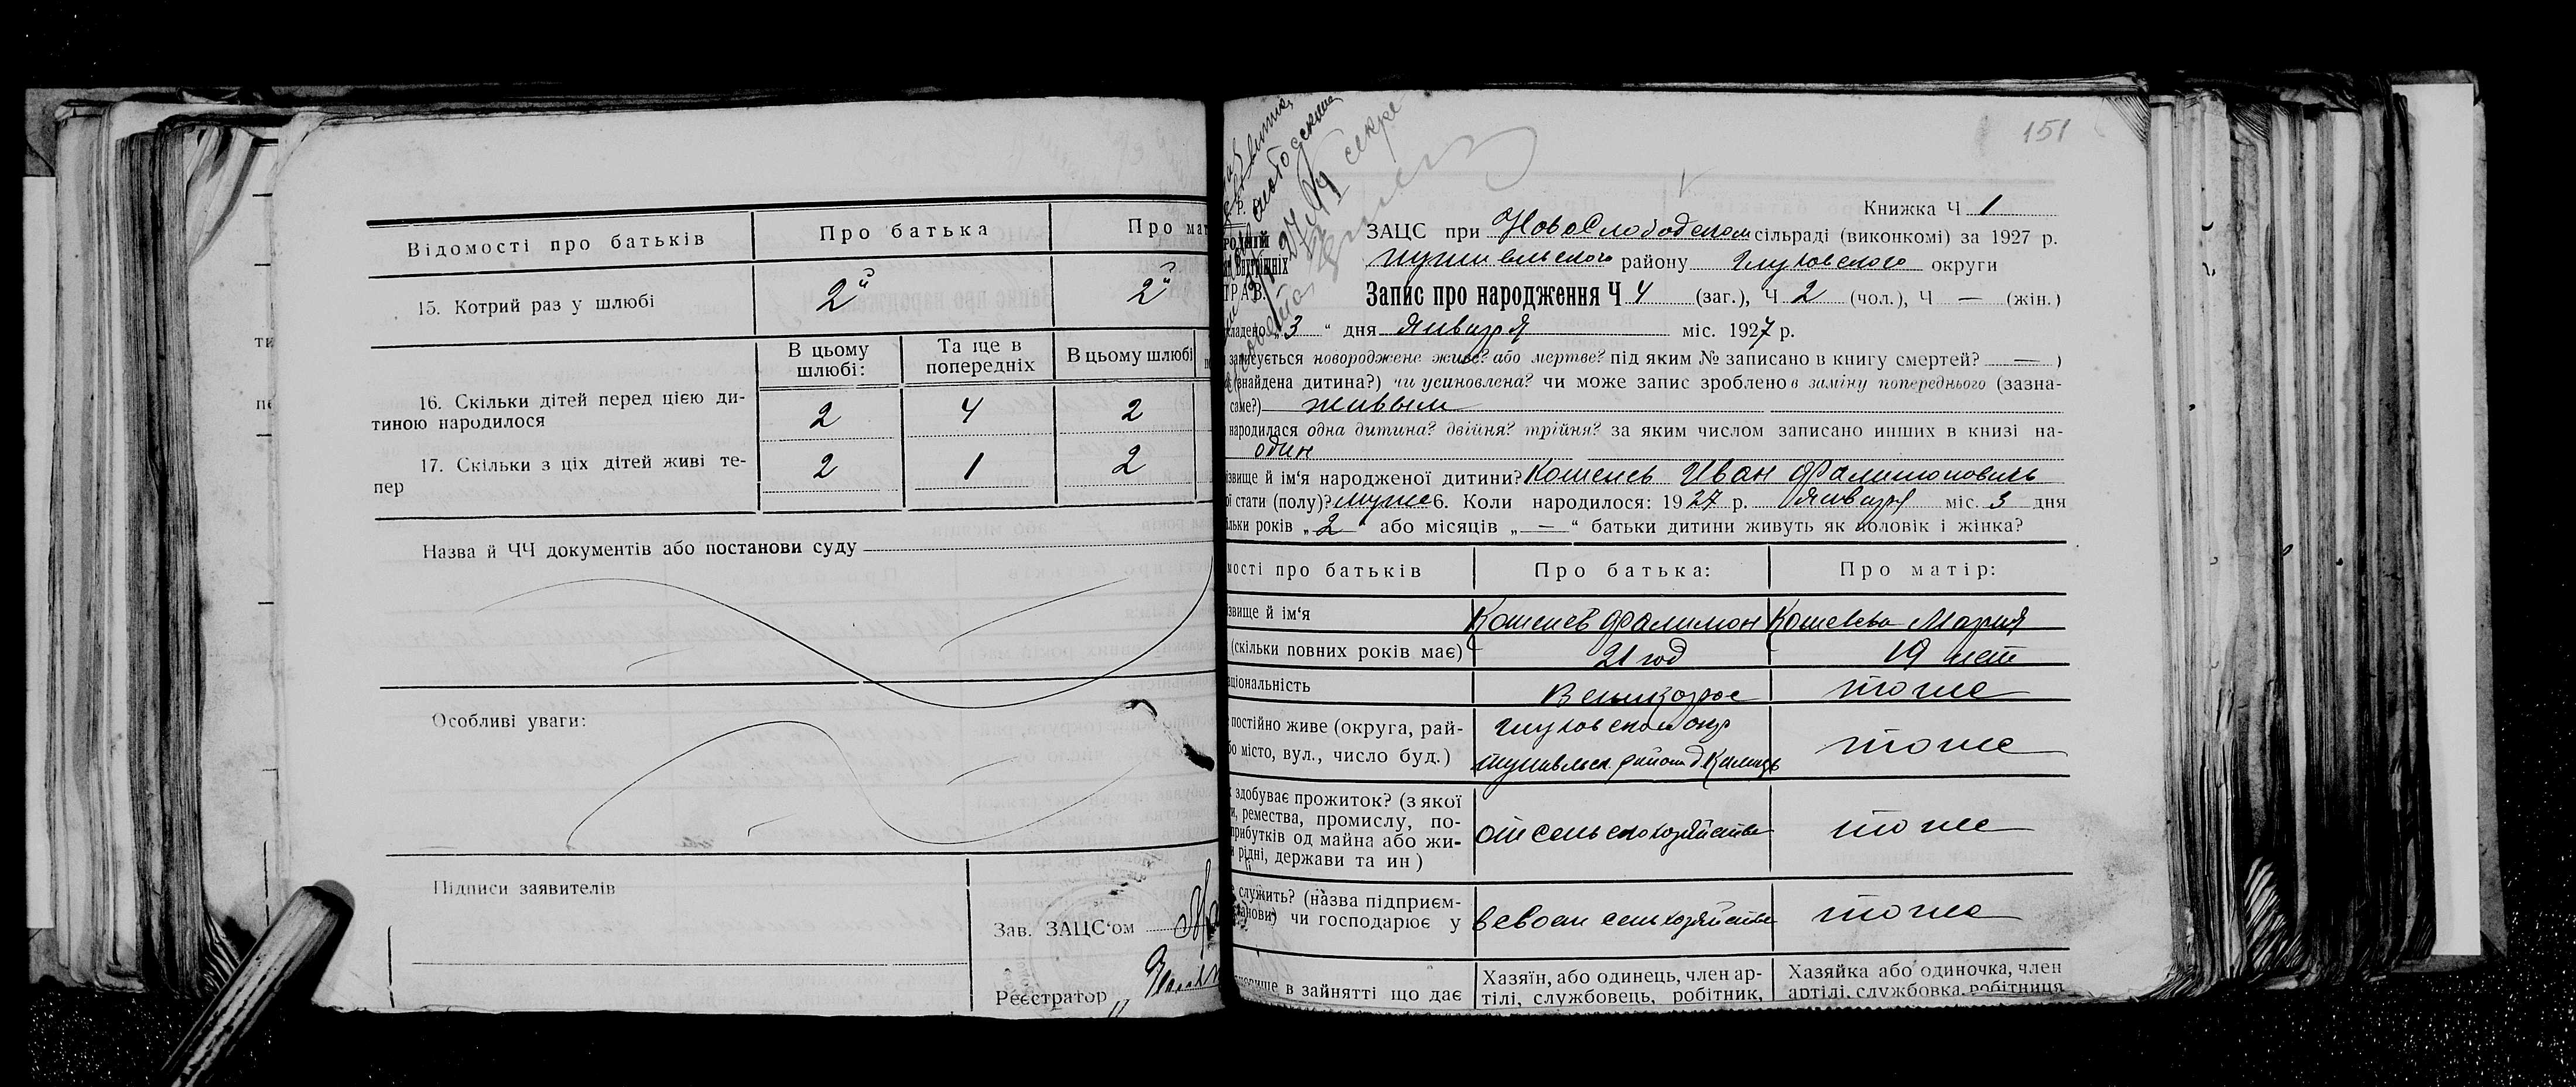 Відомості про батьків
Про батька
Про мат
15. Котрий раз у шлюбі
2й
2й
В цьому шлюбі:
Та ще в попередніх
В цьому шлюбі
16. Скільки дітей перед цією ди-
тиною народилося
2
4
2
17. Скільки з ціх дітей живі те-
пер
2
1
2
Назва й ЧЧ документів або постанови суду
Особливі уваги:
Підписи заявителів
Зав. ЗАЦС'ом
Реєстратор
151
Книжка Ч 1
ЗАЦС при Новослободском сільраді (виконкомі) за 1927 р.
Путивльского району Глуховского округи
Запис про народження Ч 4 (заг.), Ч 2 (чол.), Ч — (жін.)
кладено „3“ дня Января міс. 1927 р.
записується новороджене живе? або мертве? під яким № записано в книгу смертей? — )
(знайдена дитина?) чи усиновлена? чи може запис зроблено в заміну попереднього (зазна-
саме?) живым
народилася одна дитина? двійня? трійня? за яким числом записано инших в книзі на-
один
звище й ім'я народженої дитини? Кошелев Иван Фалимонович
стати (полу)? муже 6. Коли народилося: 1927 р. Января міс. 3 дня
льки років „2“ або місяців „—“ батьки дитини живуть як чоловік і жінка?
мості про батьків
Про батька:
Про матір:
звище й ім'я
Кошелев Фалимон
Кошелева Мария
(скільки повних років має)
21 год
19 лет
ціональність
Великорос
тоже
постійно живе (округа, рай-
бо місто, вул., число буд.)
Глуховской окр
Путивльск. район д
тоже
здобуває прожиток? (з якої
и, ремества, промислу, по-
прибутків од майна або жи-
рідні, держави та ин)
от сельского хозяйства
тоже
служить? (назва підприєм-
танови) чи господарює у
в своем сельхозяйстве
тоже
в зайнятті що дає
Хазяїн, або одинець, член ар-
тілі, службовець, робітник,
Хазяйка або одиночка, член
артілі, службовка, робітниця